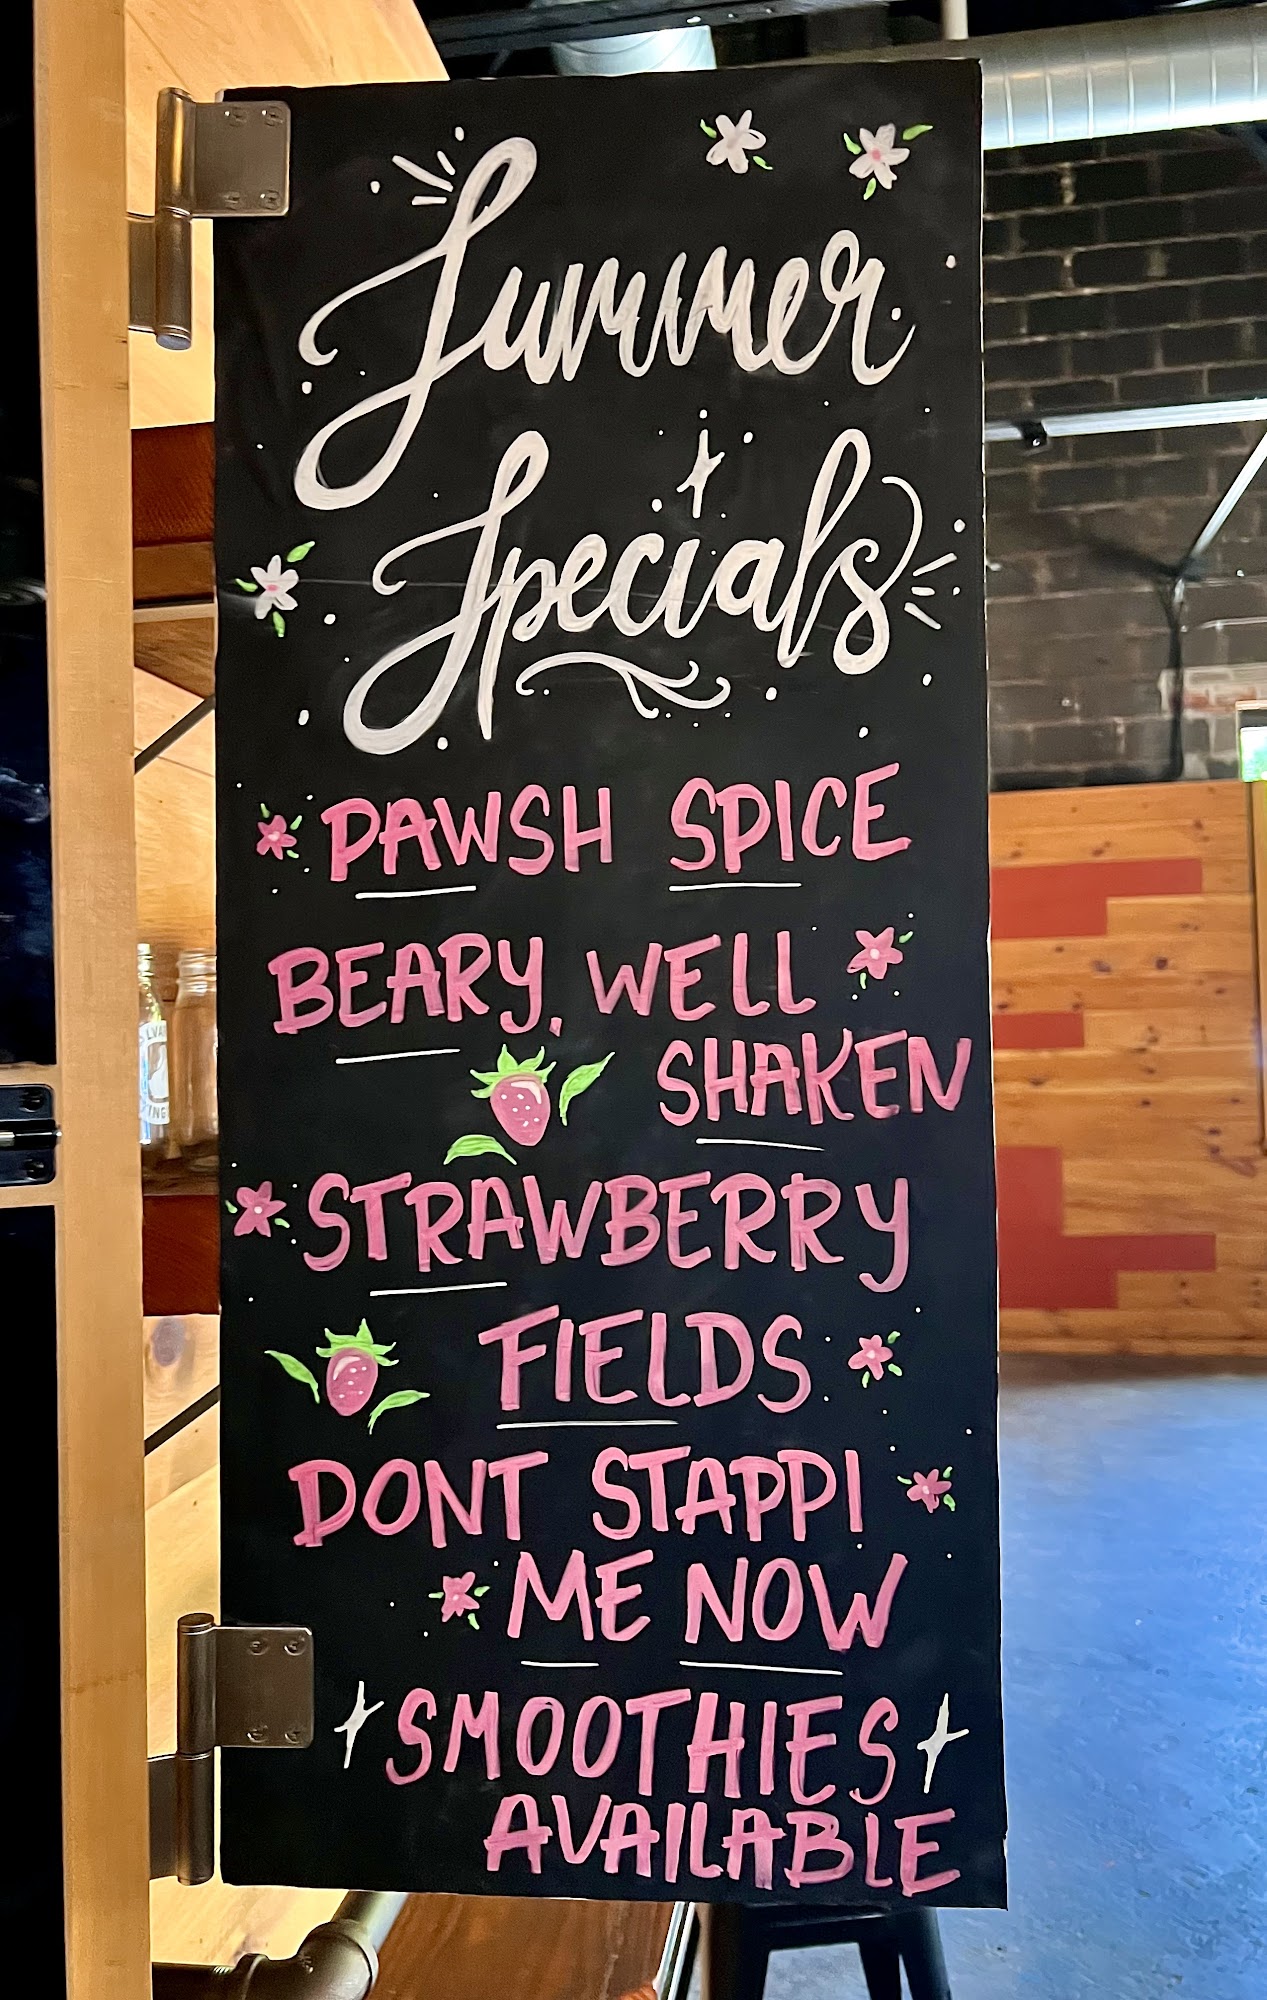 Summer
Specials
PAWSH SPICE
BEARY, WELL
SHAKEN
STRAWBERRY
FIELDS
DONT STAPPI
ME NOW
SMOOTHIES
AVAILABLE